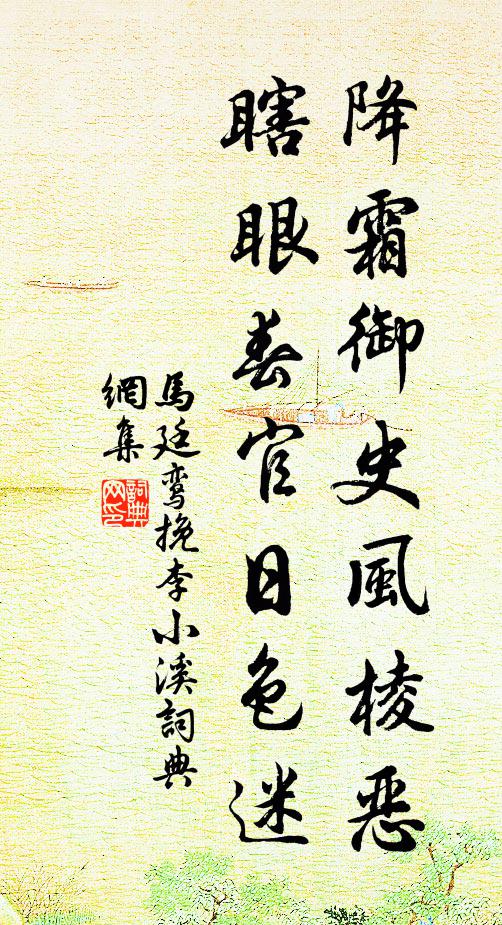 降霜御史風棱恶
瞎眼春官日色迷
馬廷鸾挽李小溪詞典
網集
詞典
网印